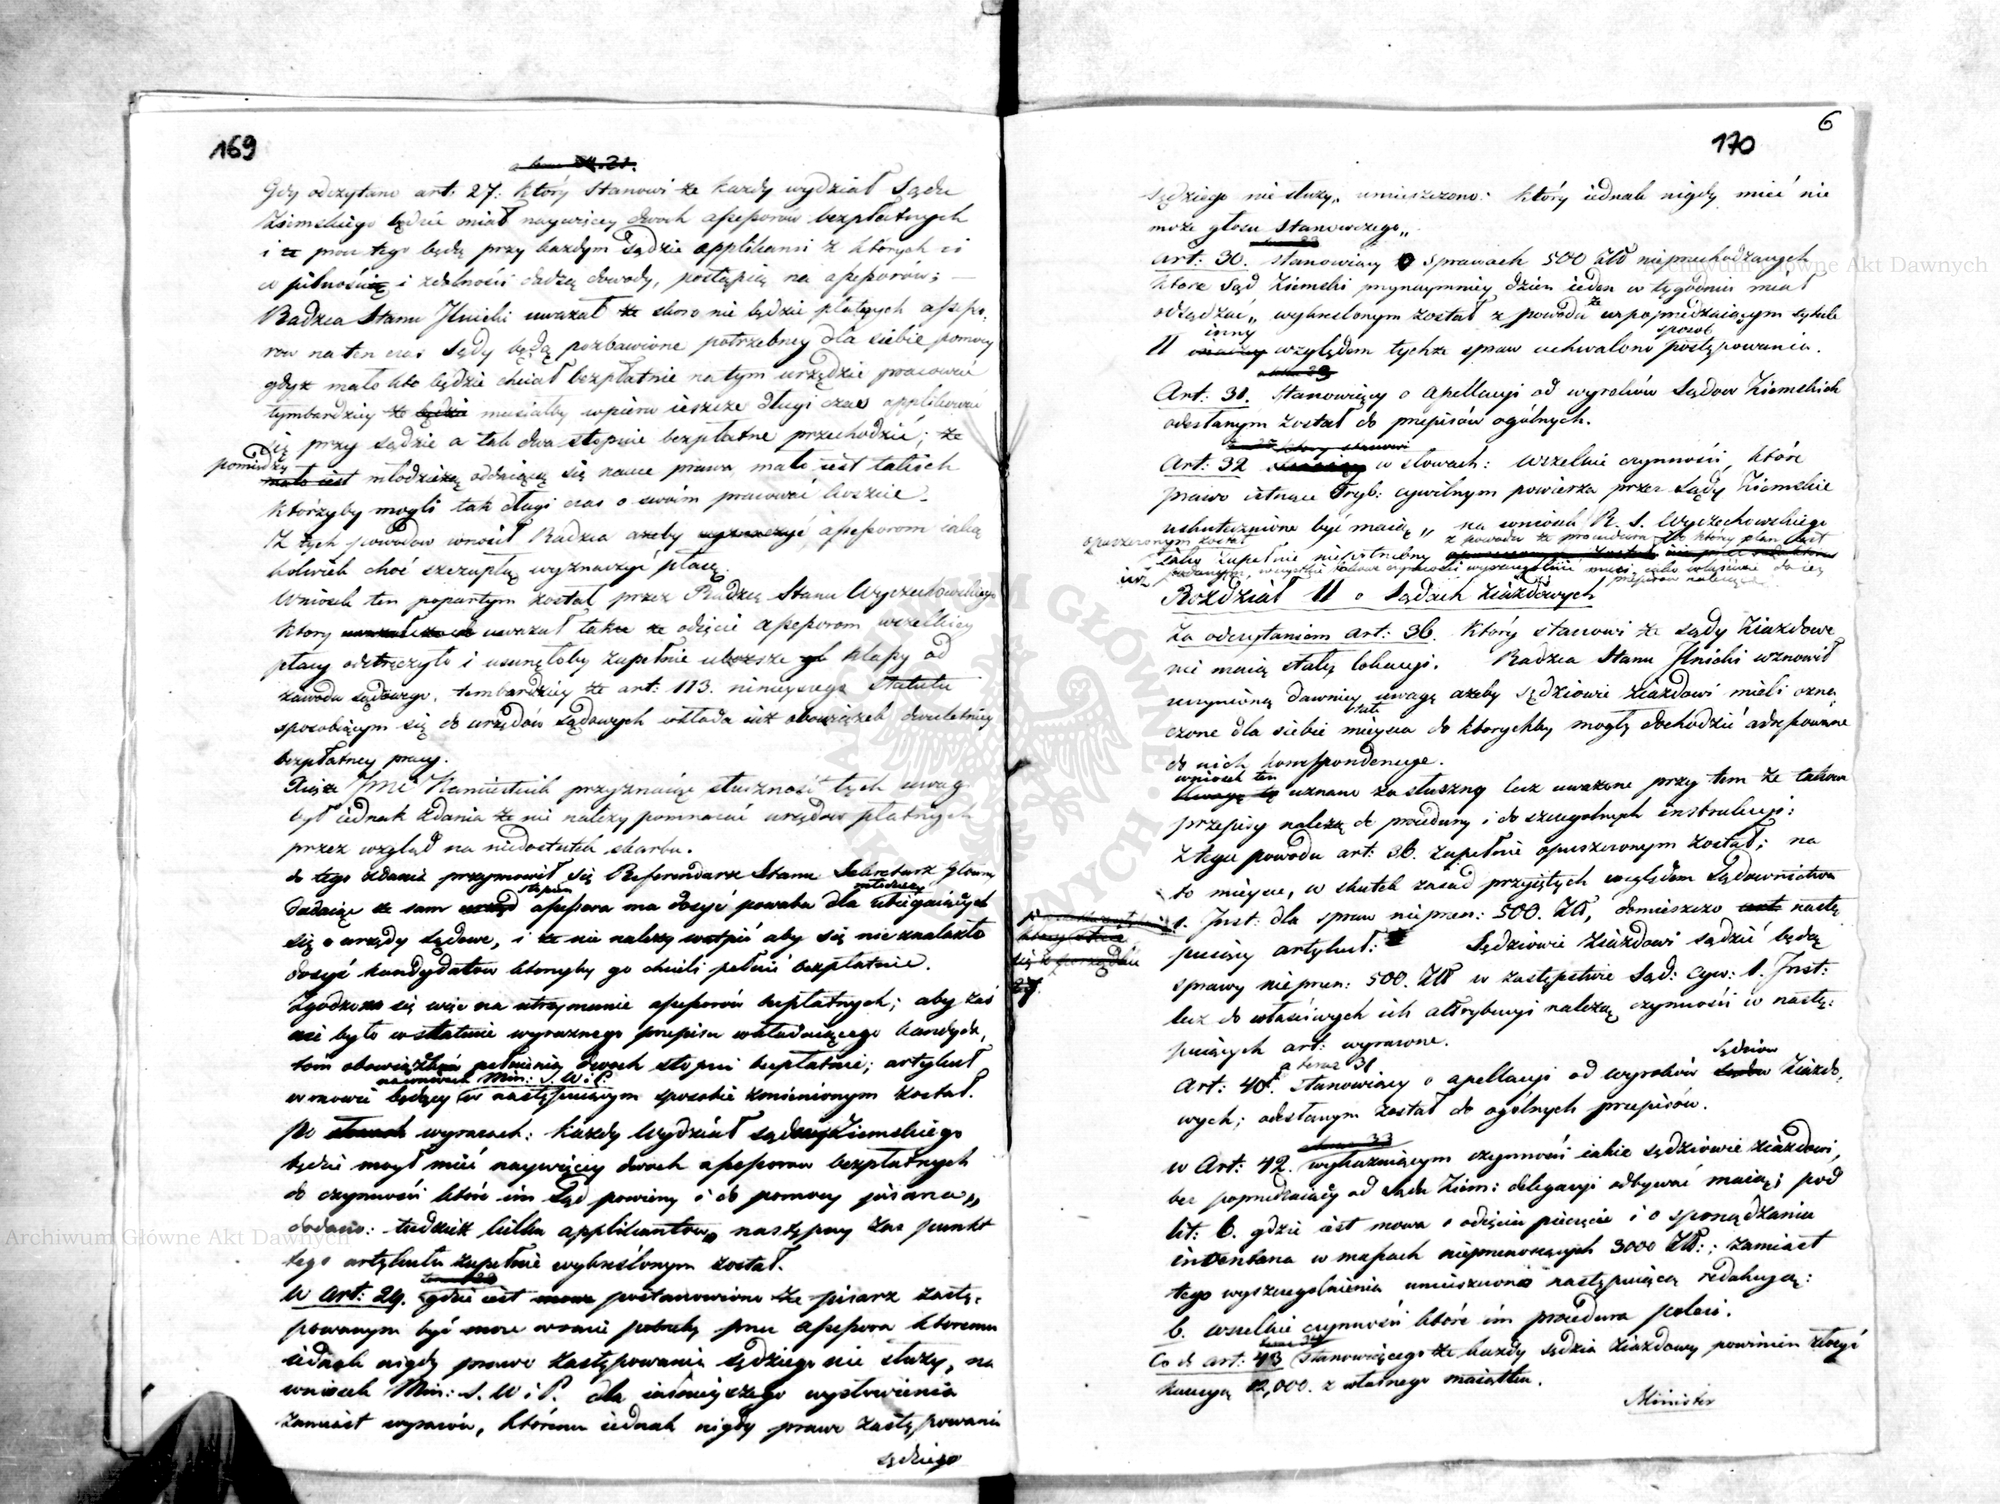 169
a teraz 21.
Gdy odczytano art: 27: który stanowi że każdy wydział Sądu
Ziemskiego będzie miał naywięcey dwoch assessorow bezpłatnych
i że procz tego będą przy każdym Sądzie applikanci z których ci
co pilności i zdolności dadzą dowody, postąpią na assessorów; —
Radzca Stanu Jlnicki uważał że skoro nie będzie płatnych assesso-
row na ten czas Sądy będą pozbawione potrzebney dla siebie pomocy
gdyż mało kto będzie chciał bezpłatnie na tym urzędzie pracować
tymbardziey że będzie musiałby wpierw ieszcze długi czas applikować
się przy sądzie a tak dwa stopnie bezpłatne przechodzić; że
pomiędzy
mało iest młodzieżą oddaiącą się nauce prawa, mało iest takich
którzyby mogli tak długi czas o swoim pracować koszcie.
Z tych powodow wnosił Radzca ażeby wyznaczyć assessorom iaką
kolwiek choć szczupłą wyznaczyć płacę.
Wniosek ten popartym został przez Radzcę Stanu Wyczechowskiego
który uważał także że odięcie assessorom wszelkiey
płacy odstręczyło i usunęłoby zupełnie uboższe klassy od
zawodu sądowego, tembardziey że art: 113. ninieyszego Statutu
sposobiącym się do urzędów sądowych wkłada iuż obowiązek dwuletniey
bezpłatney pracy.
Xiąże Jmć Namiestnik przyznaiąc słuszność tych uwag
był iednak zdania że nie należy pomnażać urzędow płatnych
przez wzgląd na niedostatek skarbu.
do tego zdania przymówił się Referendarz Stanu Sekretarz Główny
stopień
młodzieży
dodaiąc że sam urząd assessora ma dosyć powabu dla ubiegaiących
się o urzędy sądowe, i że nie należy wątpić aby się nie znalazło
dosyć kandydatow ktorzyby go chcieli pełnić bezpłatnie.
Zgodzono się więc na utrzymanie assessorów bezpłatnych; aby zaś
nie było w statucie wyraznego przepisu wkładaiącego kandyda-
tom obowiązku pełnienia dwoch stopni bezpłatnie; artykuł
na wniosek Min: S. W i P.
w mowie będący w następuiącym sposobie zmienionym został.
Po słowach wyrazach: każdy Wydział sądowy Ziemskiego
będzie mogł mieć naywięcey dwoch assessorow bezpłatnych
do czynności które im Sąd powierzy i do pomocy pisarza„
dodano: tudzież kilku applikantow, następny zaś punkt
tego artykułu zupełnie wykreślonym został.
W Art: 29. gdzie iest mowa postanowiono że pisarz zastę-
powanym być może w razie potrzeby przez Assessora ktoremu
iednak nigdy prawo zastępowania sędziego nie służy, na
wniosek Min: S. W i P. dla iaśnieyszego wysłowienia
zamiast wyrazów, któremu iednak nigdy prawo zastępowania
sędziego
170
6
Sędziego nie służy„ umieszczono: który iednak nigdy mieć nie
może głosu Stanowczego„
Art: 30. stanowiący o sprawach 500 Złł nieprzechodzących
które Sąd Ziemski przynaymniey dzień ieden w tygodniu miał
odsądzać„ wykreślonym został z powodu że w poprzedzaiącym tytule
inny
sposob
II inaczey względem tychże spraw uchwalono postępowania.
Art: 31. Stanowiący o apellacyi od wyroków Sądow Ziemskich
odesłanym został do przepisów ogólnych.
który stanowi
Art: 32 w słowach: Wszelkie czynności, które
prawo istnące Tryb: cywilnym powierza przez Sądy Ziemskie
uskutecznione być maią„ na wniosek R. S. Wyczechowskiego
opuszczonym został
z powodu że procedura do który plan iest
iako zupełnie niepotrzebny
Rozdział II o Sądach Ziazdowych
Za odczytaniem art: 36. który stanowi że Sądy Ziazdowe
nie maią stałey lokacyi. Radzca Stanu Jlnicki wznowił
uczynioną dawniey uwagę ażeby sędziowie ziazdowi mieli ozna-
stałe
czone dla siebie mieysca do ktorychby mogły dochodzić adressowane
do nich korrespondencye.
wniosek ten
Uwagę tę uznano za słuszny lecz uważano przy tem że takowe
przepisy należą do procedury i do szczegolnych instrukcyi:
Z tego powodu art: 36. zupełnie opuszczonym został; na
to mieysce, w skutek zasad przyiętych względem Sądownictwa
1. Inst: dla spraw nieprzen: 500. Złł, domieszczo nastę
27
puiący artykuł: Sędziowie Ziazdowi sądzić będą
sprawy nieprzen: 500. Złł w zastępstwie Sąd: Cyw: 1. Inst:
lecz do właściwych ich attrybucyi należą czynności w nastę:
puiących art: wyrażone.
a teraz 31
Sędziow
Art: 40. Stanowiący o apellacyi od wyroków Sądow Ziazdo-
wych; odesłanym został do ogólnych przepisów.
w Art: 42. wykazuiącym czynności iakie sędziowie ziazdowi,
bez poprzedzaiącey od Sądu Ziem: delegacyi odbywać maią; pod
lit: b. gdzie iest mowa o odięciu pieczęci i o sporządzaniu
inwentarza w massach nieprzenoszących 3000 Złł:; zamiast
tego wyszczegolnienia umieszczono następuiącą redakcyą:
b. wszelkie czynności które im procedura poleci.
Co do art: 43 stanowiącego że każdy sędzia ziazdowy powinien złożyć
kaucyą 12,000. z własnego maiątku.
Minister
Archiwum Główne Akt Dawnych
Archiwum Główne Akt Dawnych
ARCHIWUM GŁÓWNE AKT DAWNYCH